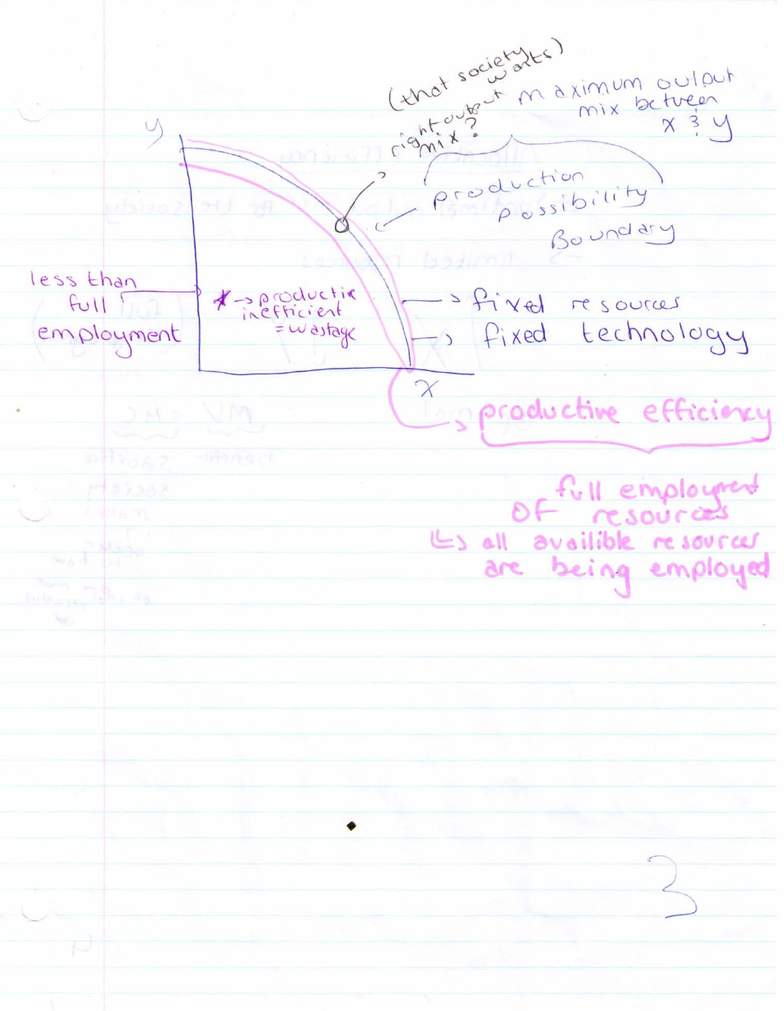 (that society
wants)
right output
mix?
maximum output
mix between
x & y
y
production
possibility
Boundary
less than
full
employment
x → productive
inefficient
= wastage
→ fixed resources
→ fixed technology
x
→ productive efficiency
full employment
of resources
↳ all availible resources
are being employed
3